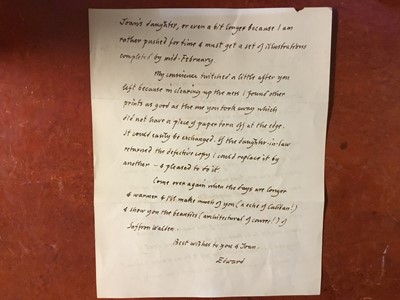 Joan's daughter, or even a bit longer because I am
rather pushed for time & must get a set of illustrations
completed by mid-February.
My conscience twitched a little after you
left because in clearing up the mess I found other
prints as good as the one you took away which
did not have a piece of paper torn off at the edge.
It could easily be exchanged. If the daughter-in-law
returned the defective copy I could replace it by
another — & pleased to do it.
Come over again when the days are longer
& warmer & I'll make much of you (a echo of Caliban!)
& show you the beauties (architectural of course!) of
Saffron Walden.
Best wishes to you & Joan.
Edward